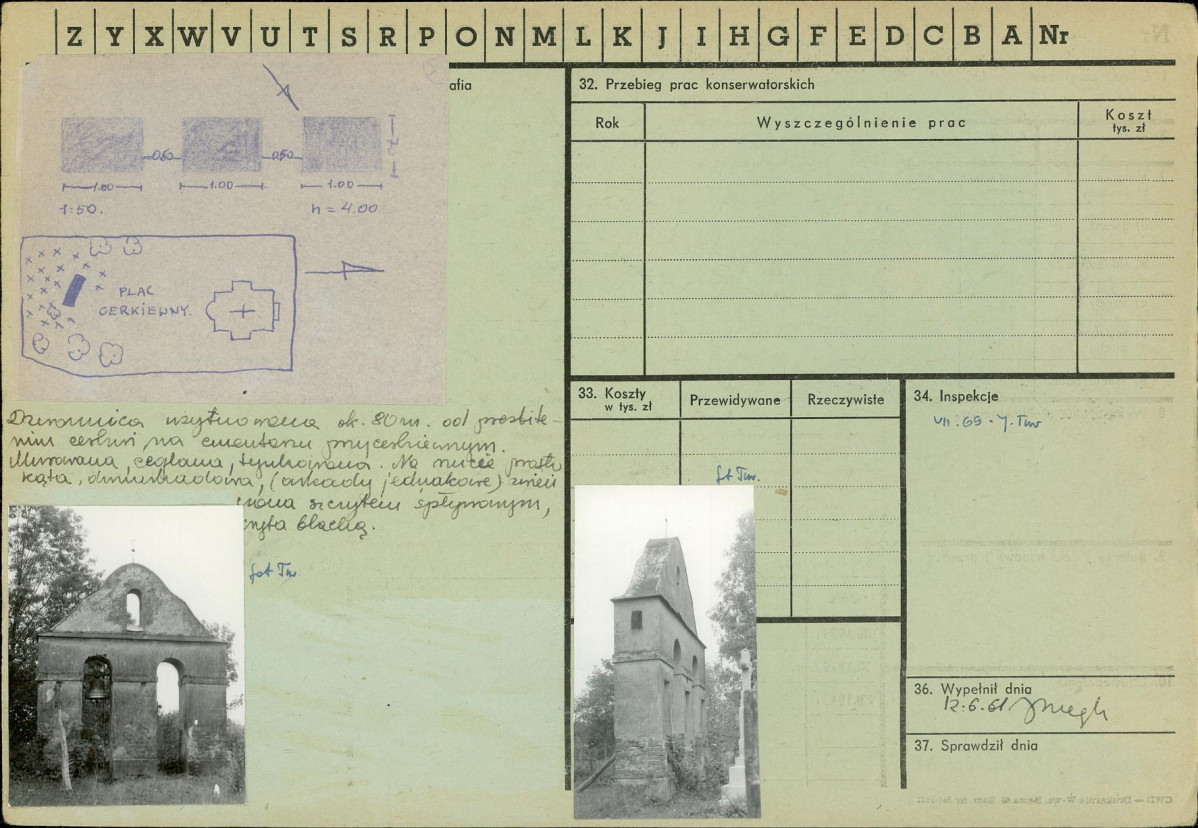 Z Y X W V U T S R P O N M L K J I H G F E D C B A Nr
afia
0.50 0.50
1.00 1.00 1.00
1:50. h = 4.00
PLAC
CERKIEWNY.
Dzwonnica usytuowana ok. 80 m. od prezbite-
rium cerkwi na cmentarzu przycerkiewnym.
Murowana, ceglana, tynkowana. Na rucie prosto
kąta, dwuarkadowa, (arkady jednakowe)
szczytem spływowym,
blachą.
fot Tur
32. Przebieg prac konserwatorskich
Rok Wyszczególnienie prac Koszt
tys. zł
33. Koszty
w tys. zł
Przewidywane Rzeczywiste
fot Tur.
34. Inspekcje
VII. 69 - J. Tur
36. Wypełnił dnia
12.6.61
37. Sprawdził dnia